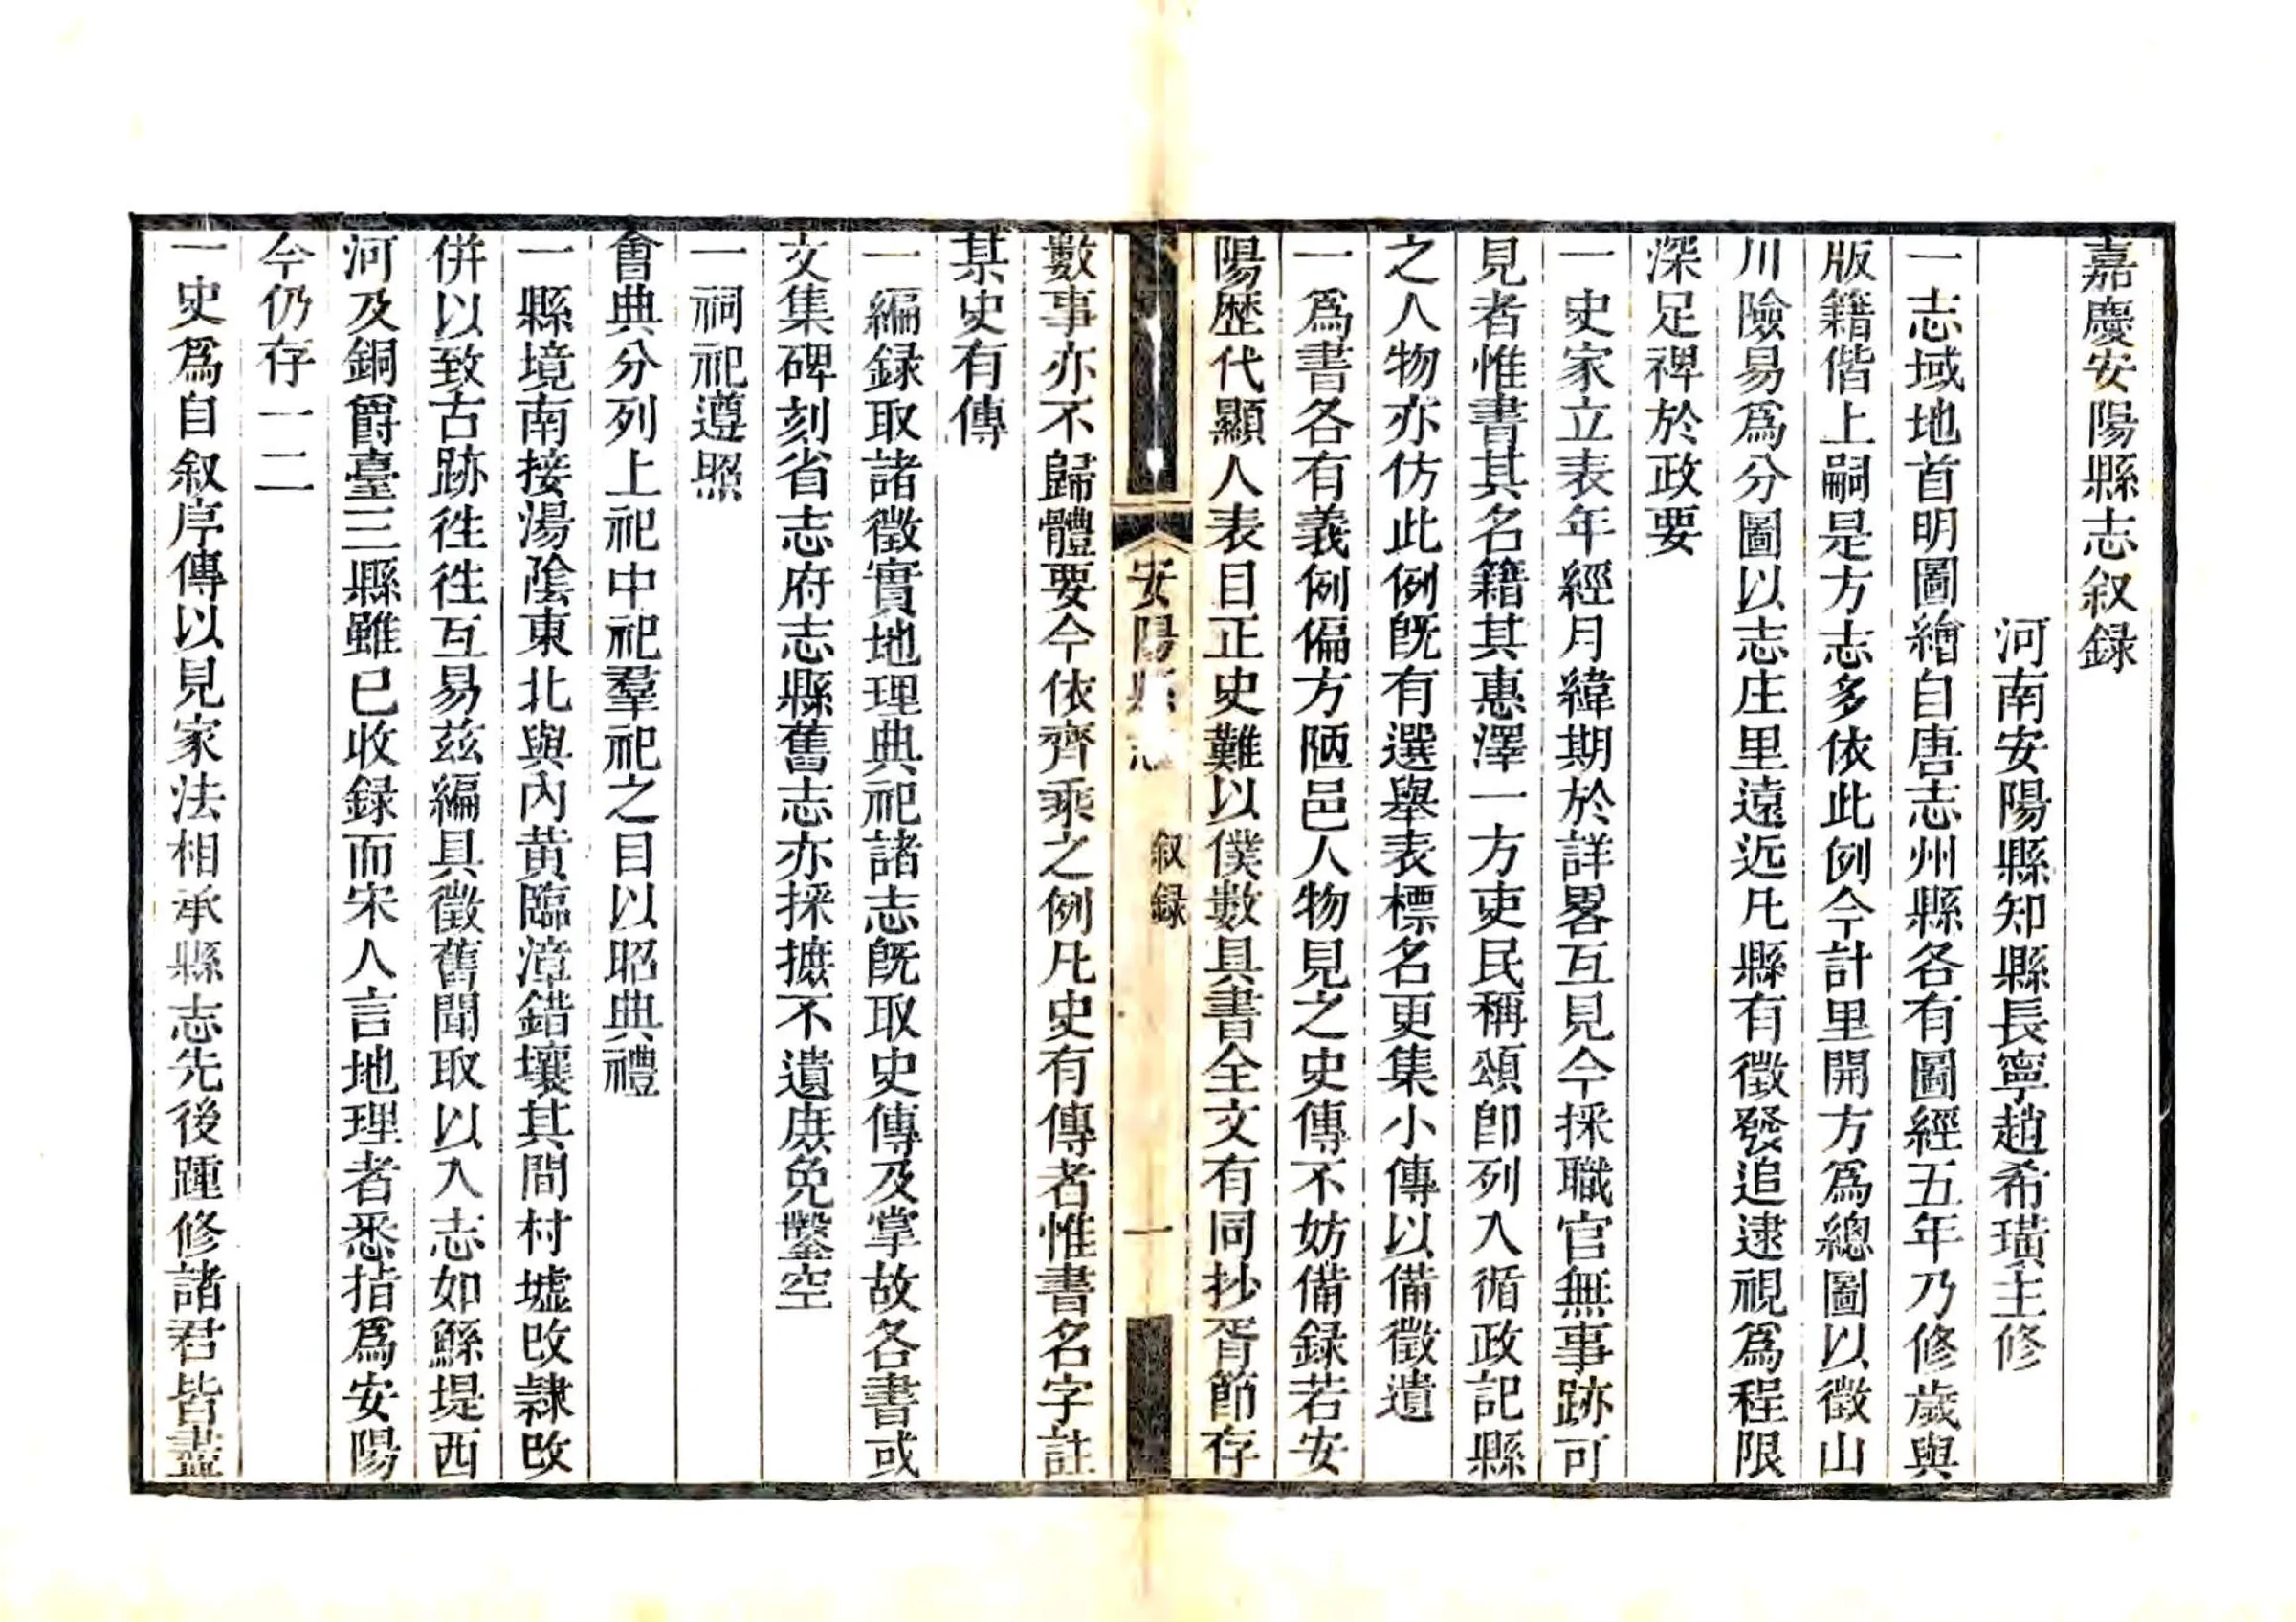 嘉慶安陽縣志叙録
河南安陽縣知縣長寧趙希璜主修
一志域地首明圖繪自唐志州縣各有圖經五年乃修歲與
版籍偕上嗣是方志多依此例今計里開方爲總圖以徵山
川險易爲分圖以志庄里遠近凡縣有徵發追逮視爲程限
深足禆於政要
一史家立表年經月緯期於詳畧互見今採職官無事跡可
見者惟書其名籍其惠澤一方吏民稱頌卽列入循政記縣
之人物亦仿此例旣有選舉表標名更集小傳以備徵遺
一爲書各有義例偏方陋邑人物見之史傳不妨備録若安
陽歴代顯人表目正史難以僕數具書全文有同抄胥節存
安陽縣志
叙録
一
數事亦不歸體要今依齊乘之例凡史有傳者惟書名字註
某史有傳
一編録取諸徵實地理典祀諸志旣取史傳及掌故各書或
文集碑刻省志府志縣舊志亦採摭不遺庶免鑿空
一祠祀遵照
會典分列上祀中祀羣祀之目以昭典禮
一縣境南接湯陰東北與內黃臨漳錯壤其間村墟改隷改
併以致古跡徃徃互易兹編具徵舊聞取以入志如鯀堤西
河及銅爵臺三縣雖已收録而宋人言地理者悉指爲安陽
今仍存一二
一史爲自叙序傳以見家法相承縣志先後踵修諸君皆盡